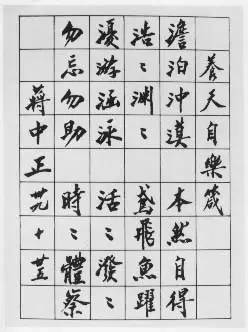 養天自樂箴
澹泊沖漠本然自得
浩〻淵〻鳶飛魚躍
優游涵泳活〻潑〻
勿忘勿助時〻體察
蔣中正卅九十廿五